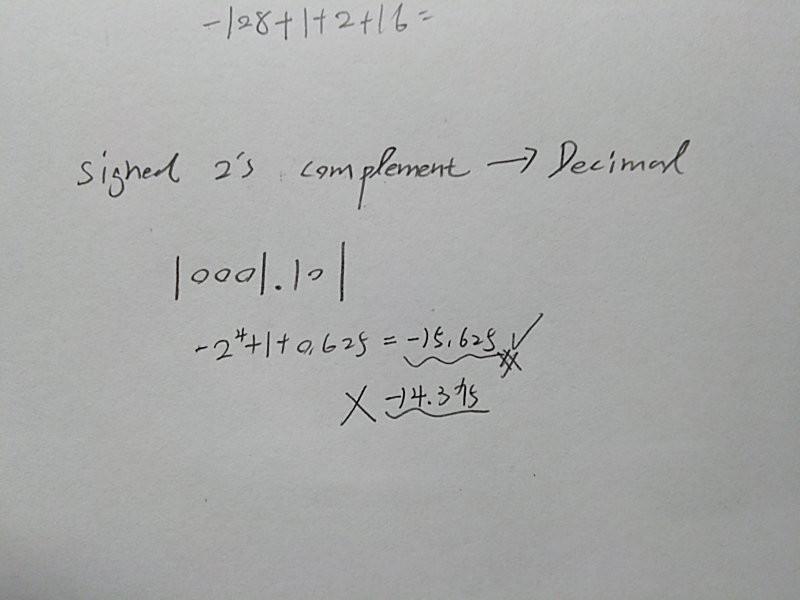 -128+1+2+16=
signed 2's complement → Decimal
10001.101
-2⁴+1+0.625 = -15.625 ✓
X -14.375